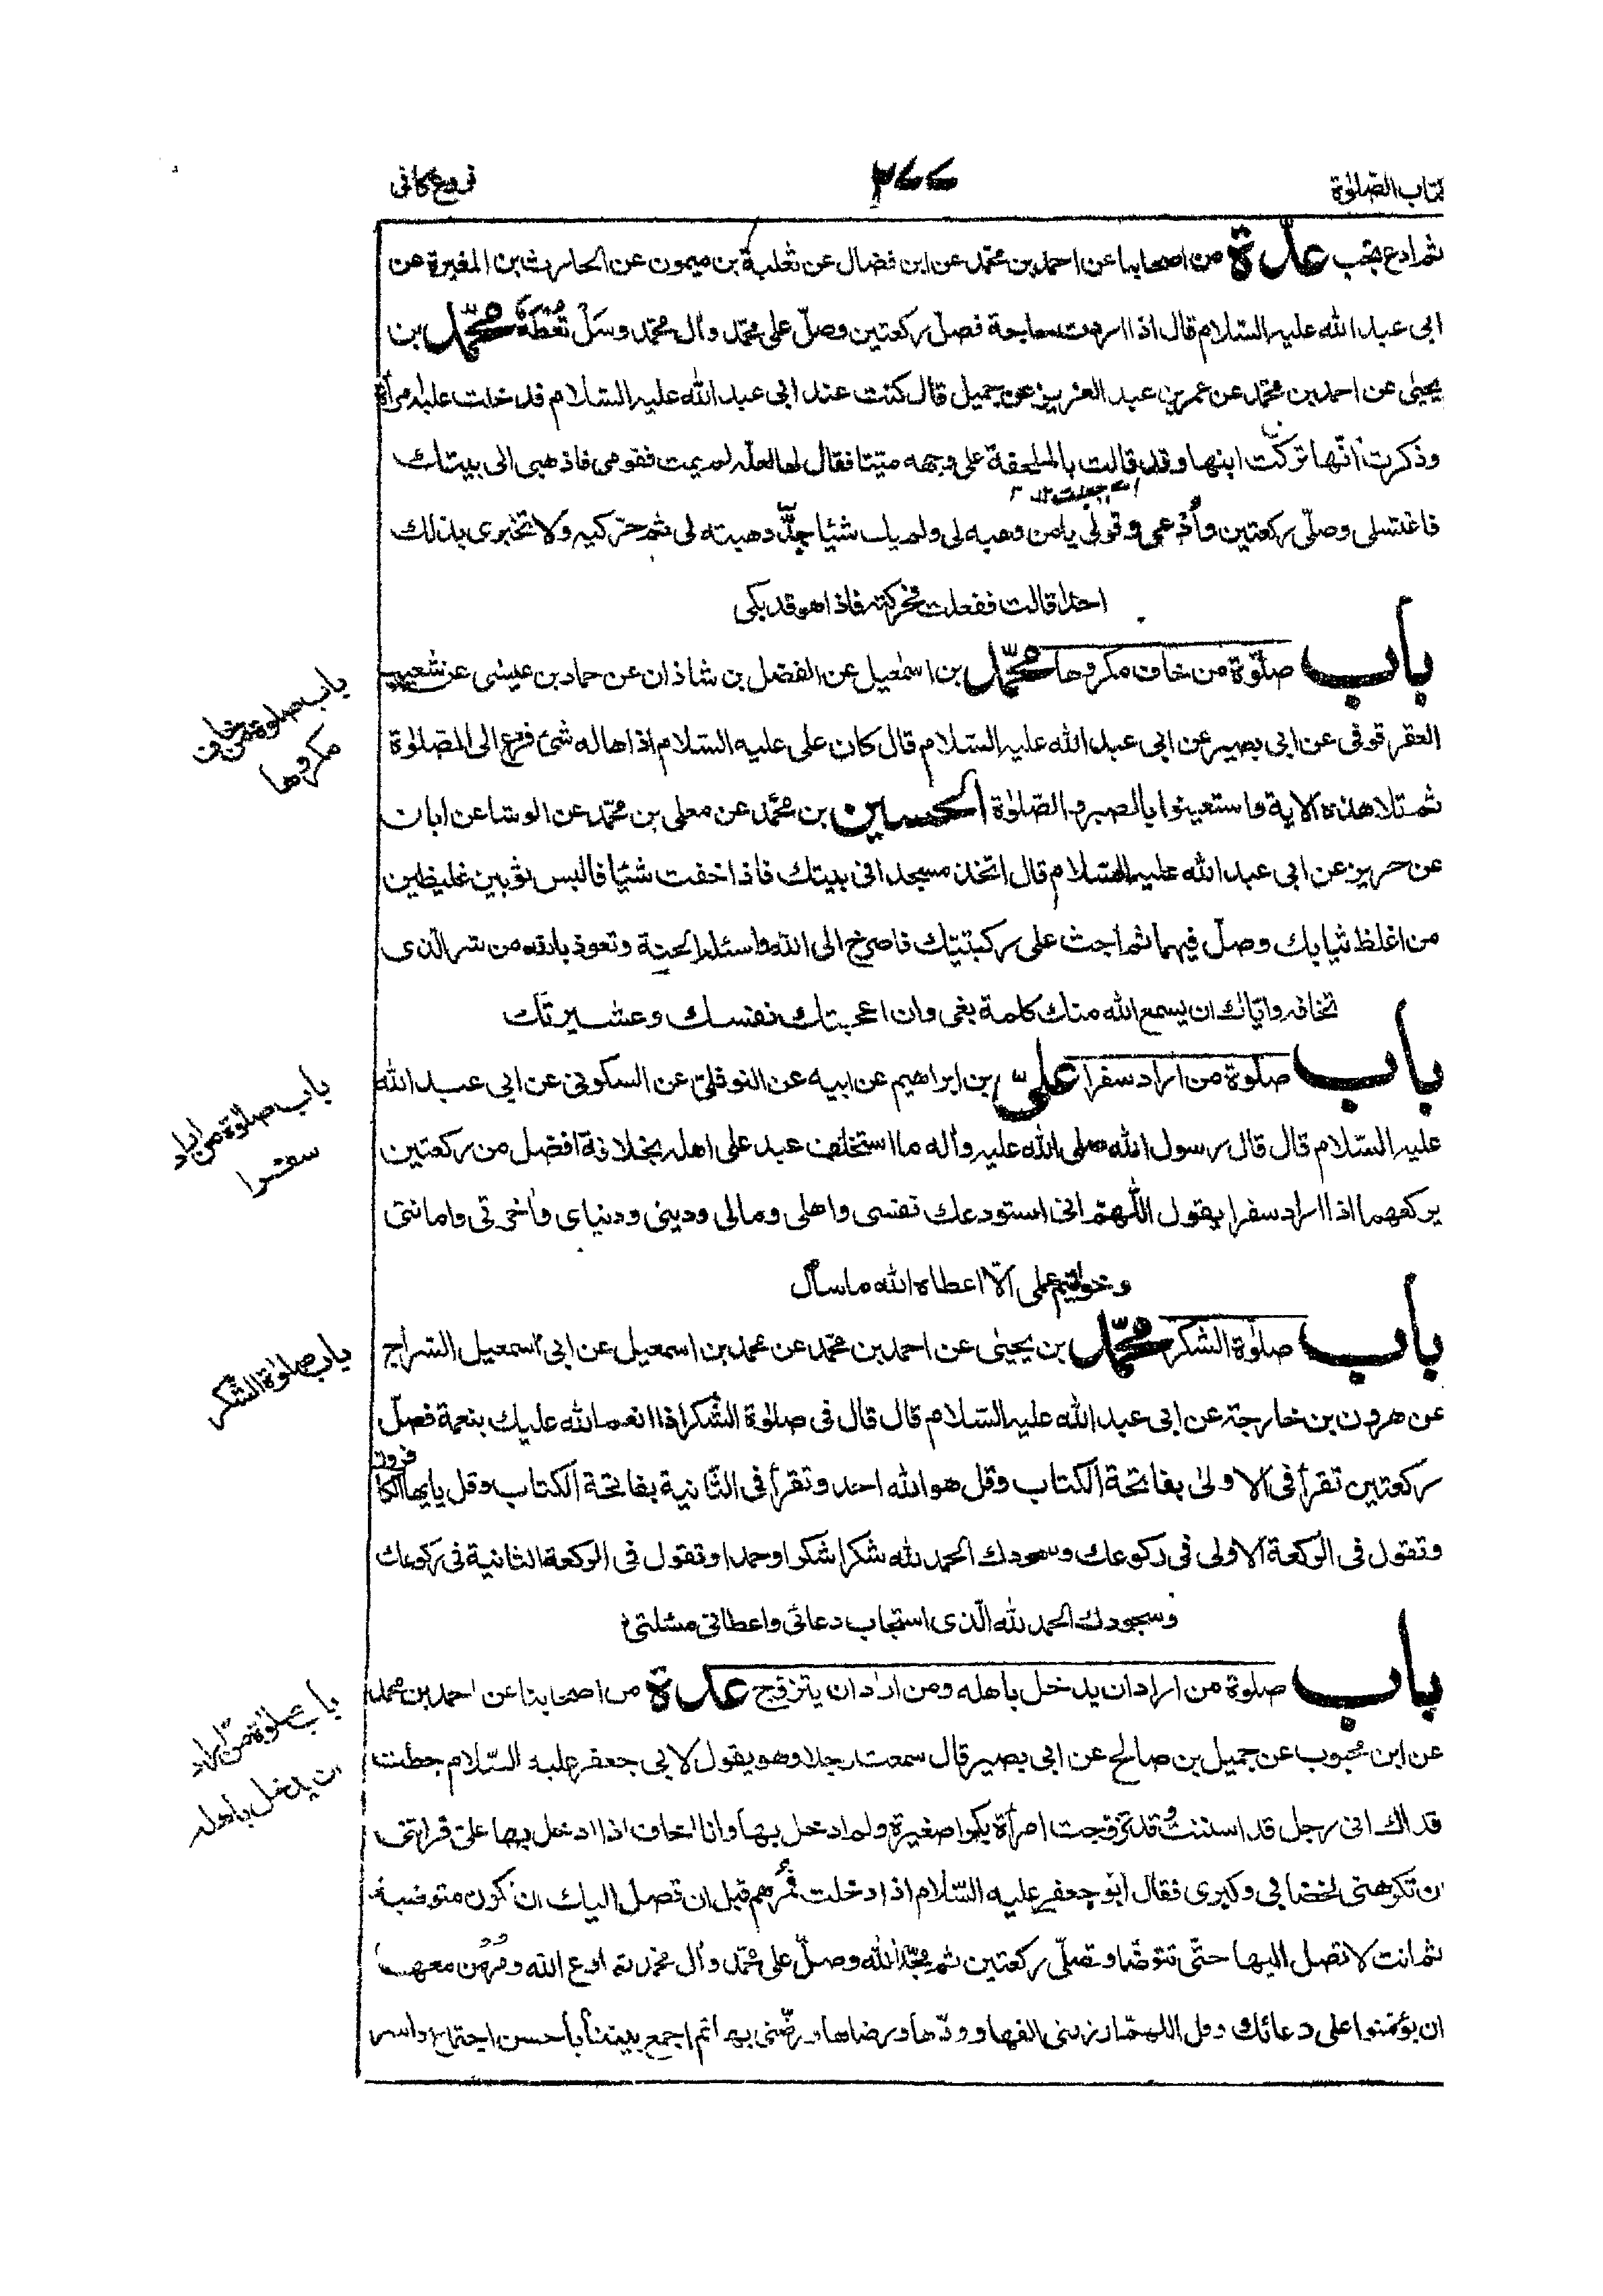 كتاب الصلوة
فروع كافى
ثم ادع تجب عدة من اصحابنا عن احمد بن محمّد عن ابن فضال عن ثعلبة بن ميمون عن الحارث بن المغيرة عن
ابى عبد الله عليه السّلام قال اذا اردت حاجة فصلّ ركعتين وصلّ على محمّد وآل محمّد وسَلْ تُعْطَهْ محمّد بن
يحيٰى عن احمد بن محمّد عن عمر بن عبد العزيز عن جميل قال كنت عند ابى عبد الله عليه السّلام فدخلت عليه امرأة
وذكرت انّها تركت ابنها وقد قالت بالملحفة على وجهه ميّتا فقال لها لعلّه لم يمت فقومى فاذهبى الى بيتك
فاغتسلى وصلّى ركعتين وأدْعى وقولى يا من وهبه لى ولم يك شيئا جدّد هبته لى ثم حرّكيه ولا تخبرى بذلك
احدا قالت ففعلت فحركته فاذا هو قد بكى
باب صلوٰة من خاف مكروها محمّد بن اسمٰعيل عن الفضل بن شاذان عن حماد بن عيسٰى عن شعيب
العقرقوفى عن ابى بصير عن ابى عبد الله عليه السّلام قال كان على عليه السّلام اذا هاله شئ فزع الى الصّلوٰة
ثم تلا هذه الاية واستعينوا بالصبر والصّلوٰة الحسين بن محمّد عن معلى بن محمّد عن الوشا عن ابان
عن حريز عن ابى عبد الله عليه السّلام قال اتخذ مسجدا فى بيتك فاذا خفت شيئا فالبس ثوبين غليظين
من اغلظ ثيابك وصلّ فيهما ثم اجث على ركبتيك فاصرخ الى الله واسئله الجنة وتعوذ بالله من شر الّذى
تخافه وايّاك ان يسمع الله منك كلمة بغى وان اعجبتك نفسك وعشيرتك
باب صلوٰة من اراد سفرا علىّ بن ابراهيم عن ابيه عن النوفلى عن السكونى عن ابى عبد الله
عليه السّلام قال قال رسول الله صلى الله عليه وآله ما استخلف عبد على اهله بخلافة افضل من ركعتين
يركعهما اذا اراد سفرا يقول اللّٰهمّ انى استودعك نفسى واهلى ومالى ودينى ودنياى وآخرتى وامانتى
وخواتيم عملى الّا اعطاه الله ما سأل
باب صلوٰة الشكر محمّد بن يحيٰى عن احمد بن محمّد عن محمد بن اسمعيل عن ابى اسمعيل السّراج
عن هرون بن خارجة عن ابى عبد الله عليه السّلام قال قال فى صلوٰة الشّكر اذا انعم الله عليك بنعمة فصلّ
ركعتين تقرأ فى الاولىٰ بفاتحة الكتاب وقل هو الله احد وتقرأ فى الثّانية بفاتحة الكتاب وقل يا ايها الكافرون
وتقول فى الركعة الاولى فى ركوعك وسجودك الحمد لله شكرا شكرا وحمدا وتقول فى الركعة الثانية فى ركوعك
وسجودك الحمد لله الّذى استجاب دعائى واعطانى مسئلتى
باب صلوٰة من اراد ان يدخل باهله ومن اراد ان يتزوّج عدة من اصحابنا عن احمد بن محمد
عن ابن محبوب عن جميل بن صالح عن ابى بصير قال سمعت رجلا وهو يقول لابى جعفر عليه السّلام جعلت
فداك انى رجل قد اسننت وقد تزوّجت امرأة بكرا صغيرة ولم ادخل بها وانا اخاف اذا ادخل بها على فرأتنى
ان تكرهنى لخضابى وكبرى فقال ابو جعفر عليه السّلام اذا دخلت فمُرْهم قبل ان تصل اليك ان تكون متوضية
ثم انت لا تصل اليها حتّى تتوضّا وتصلّى ركعتين ثم مجّد الله وصلّ على محمّد وآل محمّد ثم ادع الله ومُر من معها
ان يؤمّنوا على دعائك وقل اللهمّ ارزقنى الفها وودّها ورضاها ورضّنى بها ثم اجمع بيننا بأحسن اجتماع واسر
باب صلوة من خاف
مكروها
باب صلوٰة من اراد
سفرا
باب صلوٰة الشّكر
باب صلوٰة من اراد
ان يدخل باهله